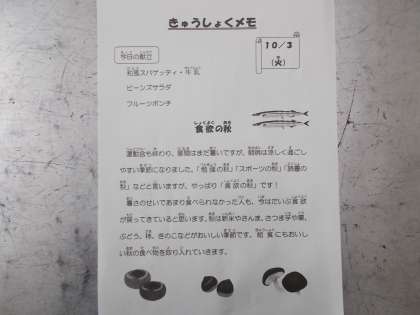 きゅうしょくメモ
10/3
(火)
今日の献立
和風スパゲッティ・牛乳
ビーンズサラダ
フルーツポンチ
食欲の秋
運動会も終わり、昼間はまだ暑いですが、朝晩は涼しく過ごし
やすい季節になりました。「勉強の秋」「スポーツの秋」「読書の
秋」などと言いますが、やっぱり「食欲の秋」です！
暑さのせいであまり食べられなかった人も、今はだいぶ食欲
が戻ってきていると思います。秋は新米やさんま、さつま芋や栗、
ぶどう、柿、きのこなどがおいしい季節です。給食にもおいし
い秋の食べ物を取り入れていきます。